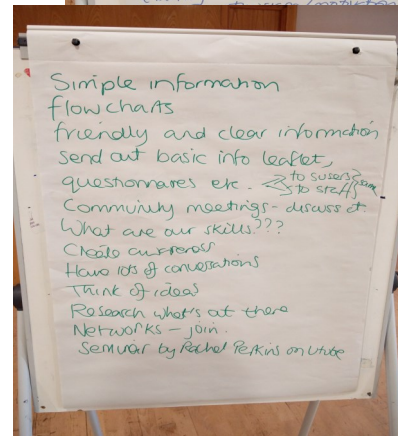 Simple information
flowcharts
friendly and clear information
send out basic info leaflet,
questionnares etc. to susers
to staff
Community meetings - discuss it
What are our skills???
Create awareness
Have lots of conversations
Think of ideas
Research what's out there
Networks - join.
Seminar by Rachel Perkins on Utube